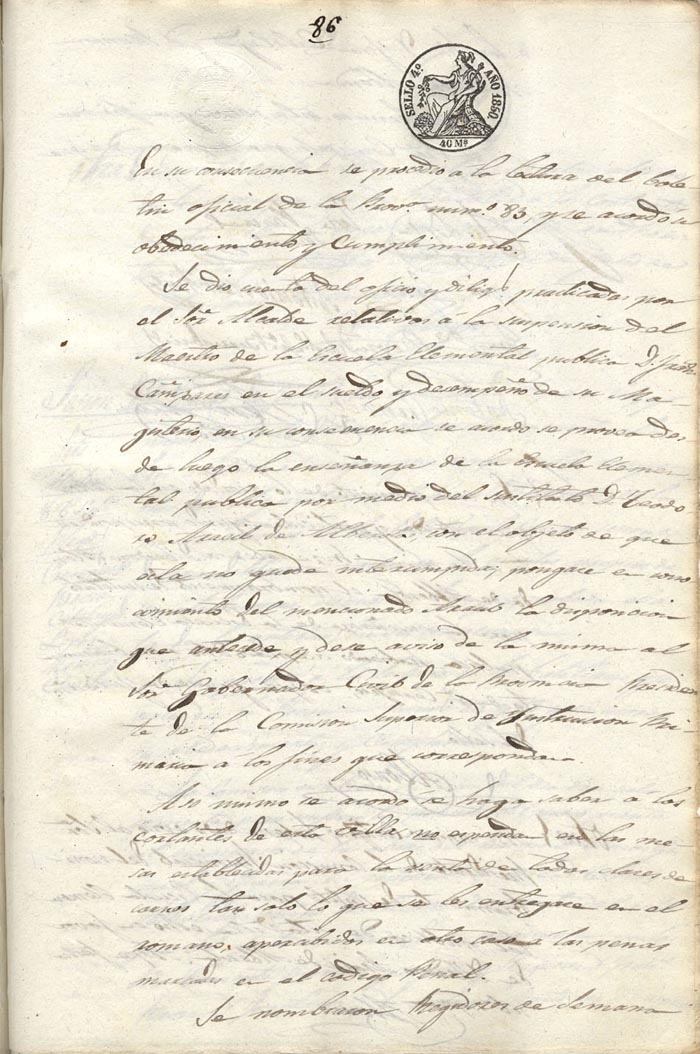 86
SELLO 4º AÑO 1850.
40 Mˢ
En su consecuencia se procedio a la lectura del Bole
tin oficial de la Provª numº 83, y se acordó su
obedecimiento y cumplimiento.
Se dio cuenta del oficio y diligˢ practicadas por
el Sor Alcalde relativas á la suspension del
Maestro de la Escuela Elemental publica D.
Cañizares en el sueldo y desempeño de su Ma
gisterio, en su consecuencia se acordo se provea des
de luego la enseñanza de la Escuela Elemen
tal publica por medio del sustituto Dⁿ Teodo
ro de con el objeto de que
esta no quede interrumpida; pongase en cono
cimiento del mencionado la disposicion
que antecede y dese aviso de la misma al
Sor Gobernador Civil de la Provincia Presiden
te de la Comision Superior de Instruccion Pri-
maria a los fines que correspondan.
Asi mismo se acordó se haga saber á los
cortantes de esta villa, no espendan en las me
sas establecidas para la venta de todas clases de
carnes tan solo lo que se les entregue en el
romano, apercibidos en otro caso á las penas
marcadas en el código Penal.
Se nombraron Regidores de Semana